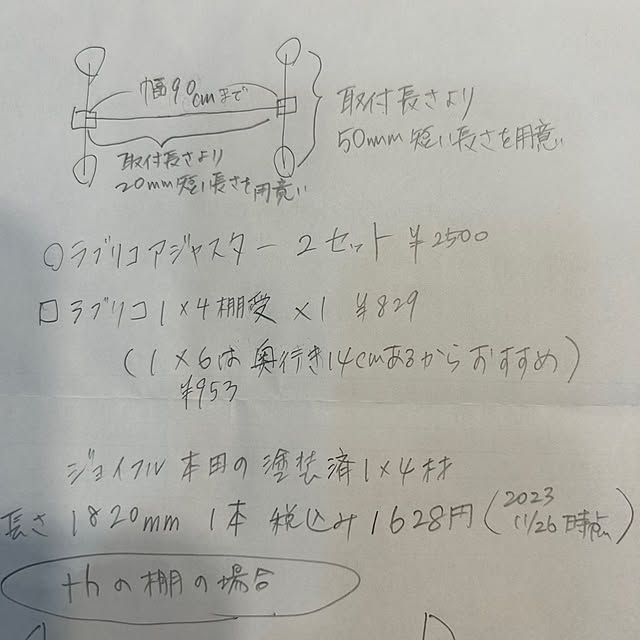 幅90cmまで
取付長さより
50mm短い長さを用意
取付長さより
20mm短い長さを用意
○ラブリコアジャスター 2セット ¥2500
□ラブリコ1×4棚受 ×1 ¥829
(1×6は奥行き14cmあるからおすすめ)
¥953
ジョイフル本田の塗装済1×4材
長さ1820mm 1本 税込み1628円(2023
11/26時点)
+hの棚の場合